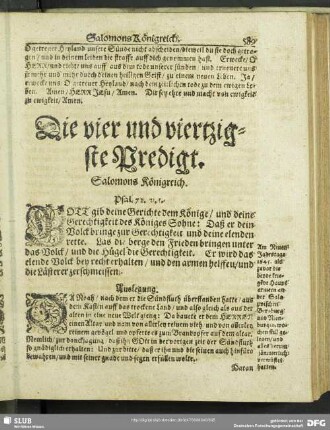 Salomons Königreich. 589
O getrewer Heyland unsere Sünde nicht abscheiden / dieweil du sie doch getra-
gen / und in deinem leiden die straffe auff dich genommen hast. Erwecke / O
HErr / und richte uns auff aus dem tode unserer sünden / und
durch deinen heiligen Geist / zu einem neuen leben. Ja /
O getrewer Heyland / nach dem zeitlichen tode zu dem ewigen le-
ben. Amen / HErr Jesu / Amen. Dir sey ehre und macht von ewigkeit
zu ewigkeit / Amen.
Die vier und viertzig-
ste Predigt.
Salomons Königreich.
Psal. 72. v. 1.
GOTT gib deine Gerichte dem Könige / und deine
Gerechtigkeit des Königes Sohne: Daß er dein
Volck bringe zur Gerechtigkeit und deine elenden
rette. Las die berge den Frieden bringen unter
das Volck / und die Hügel die Gerechtigkeit. Er wird das
elende Volck bey recht erhalten / und den armen helffen / und
die Lästerer zerschmeissen.
Am Neuen
Jahrstage
Auslegung.
DA Noah / nach dem er die Sündfluth überstanden hatte / aus
dem Kasten auff das trockene Land / und also gleich als aus der
alten in eine neue Welt gieng: Da bawete er dem HErrn
einen Altar / und nam von allerley reinem vieh und von allerley
reinem gevögel und opfferte es zum Brandopffer auf dem altar.
Nemlich / zur dancksagung / daß ihn GOtt in der vorigen zeit der Sündfluth
so gnädiglich erhalten: Und zur bitte / daß er ihn und die seinen auch hinfüro
bewahren / und mit seiner gnade und segen erfüllen wolle.
Daran
SLUB
Wir führen Wissen.
http://digital.slub-dresden.de/
gefördert von der
Deutschen Forschungsgemeinschaft
DFG